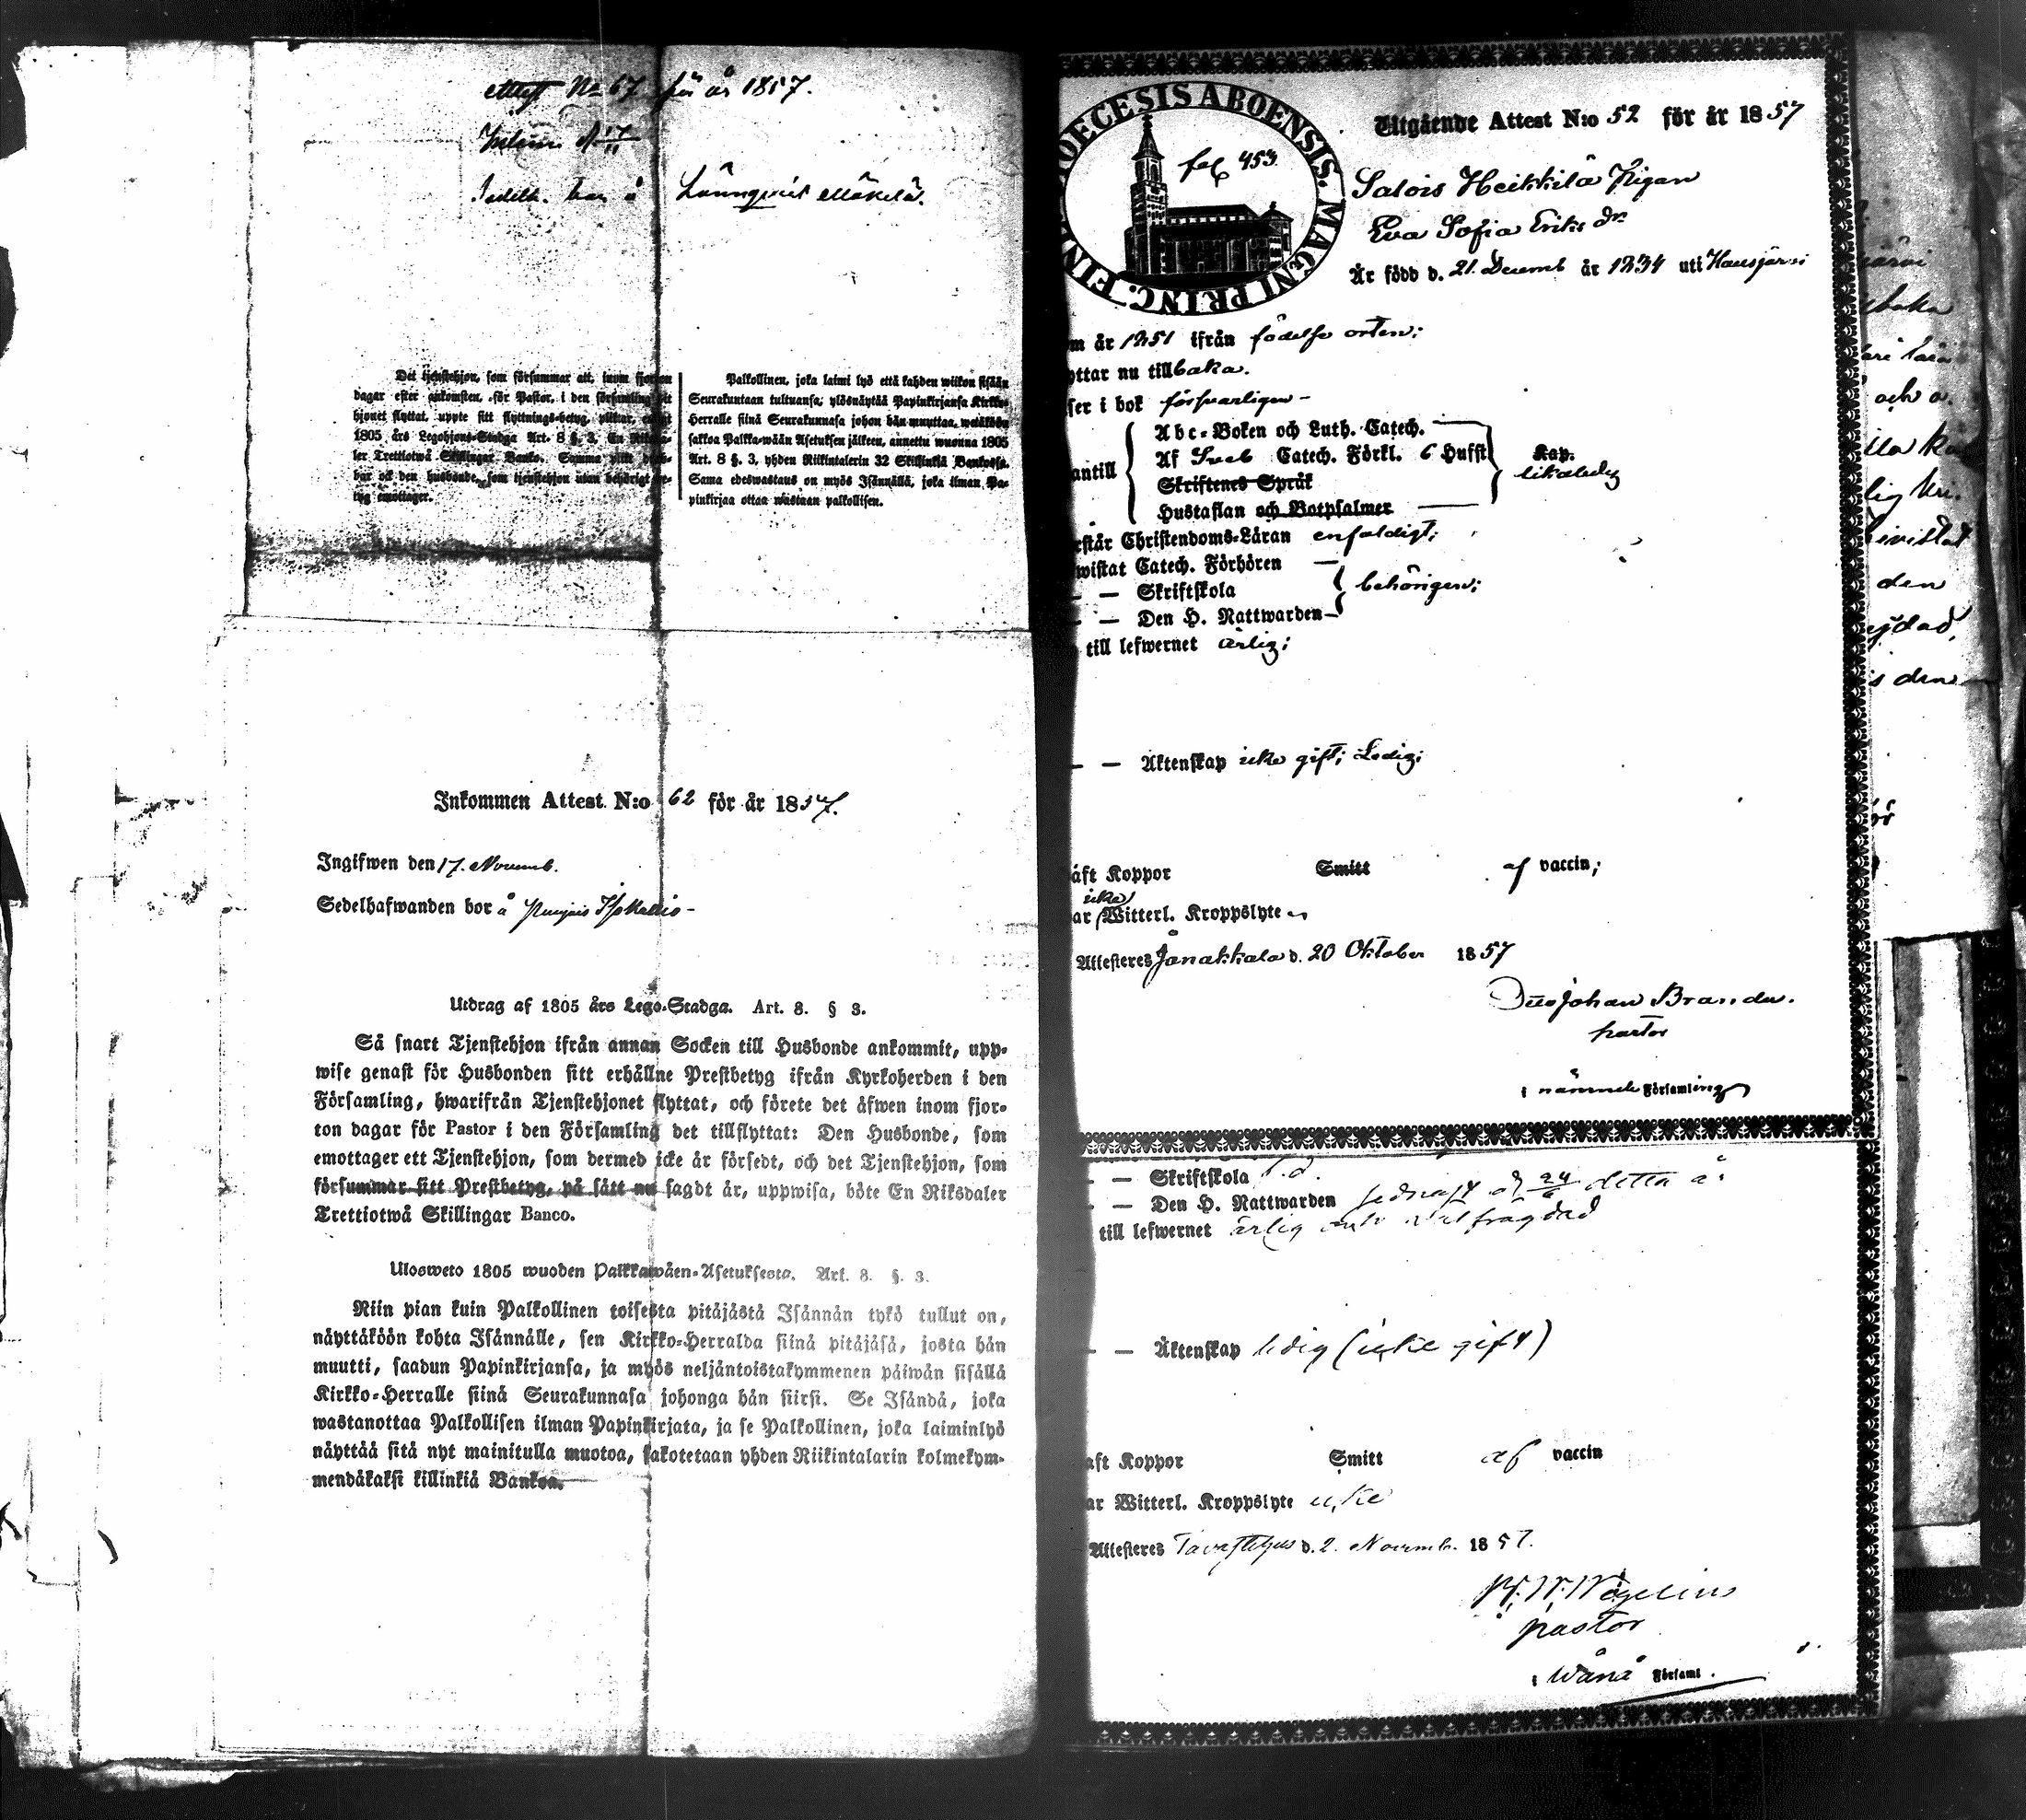 Attest No 67 för år 1857.
Sedelh. bor å Lönnqvist Mäkelä.
Det tjenstehjon, som försummar att, inom fjorton
dagar efter ankomsten, för Pastor, i den församling dit
hjonet flyttat, uppte sitt flyttnings-betyg, pliktar, enligt
1805 års Legohjons-Stadga Art. 8 §. 3, En Riksda-
ler Trettiotwå Skillingar Banko. Samma plikt drab-
bar ock den husbonde, som tjenstehjon utan behörigt be-
tyg emottager.
Palkollinen, joka laimi lyö että kahden wiikon sisään
Seurakuntaan tultuansa, ylösnäytää Papinkirjansa Kirkko-
Herralle siinä Seurakunnasa johon hän muuttaa, wetäköön
sakkoa Palkka-wään Asetuksen jälkeen, annettu wuonna 1805
Art. 8 §. 3, yhden Riikintalerin 32 Skillinkiä Bankossa.
Sama edeswastaus on myös Isännällä, joka ilman Pa-
pinkirjaa ottaa wastaan palkollisen.
Inkommen Attest N:o 62 för år 1857.
Ingifwen den 17. Novemb.
Sedelhafwanden bor å
Utdrag af 1805 års Lego-Stadga. Art. 8. § 3.
Så snart Tjenstehjon ifrån annan Socken till Husbonde ankommit, upp-
wise genast för Husbonden sitt erhållne Prestbetyg ifrån Kyrkoherden i den
Församling, hwarifrån Tjenstehjonet flyttat, och förete det äfwen inom fjor-
ton dagar för Pastor i den Församling det tillflyttat: Den Husbonde, som
emottager ett Tjenstehjon, som dermed icke är försedt, och det Tjenstehjon, som
försummar sitt Prestbetyg, på sätt nu sagdt är, uppwisa, böte En Riksdaler
Trettiotwå Skillingar Banco.
Ulosweto 1805 wuoden Palkkawäen-Asetuksesta. Art. 8. §. 3.
Niin pian kuin Palkollinen toisesta pitäjästä Isännän tykö tullut on,
näyttäköön kohta Isännälle, sen Kirkko-Herralda siinä pitäjäsä, josta hän
muutti, saadun Papinkirjansa, ja myös neljäntoistakymmenen päiwän sisällä
Kirkko-Herralle siinä Seurakunnasa johonga hän siirsi. Se Isändä, joka
wastanottaa Palkollisen ilman Papinkirjata, ja se Palkollinen, joka laiminlyö
näyttää sitä nyt mainitulla muotoa, sakotetaan yhden Riikintalarin kolmekym-
mendäkaksi killinkiä Bankoa.
DIOECESIS ABOENSIS. MAGNI PRINC. FIN
fol 453.
Utgående Attest N:o 52 för år 1857
Salois Heikkilä Pigan
Eva Sofia Eriks dr
Är född d. 21. Decemb år 1834 uti Hausjärvi
m år 1851 ifrån födelse orten;
yttar nu tillbaka.
ser i bok försvarligen -
Abc-Boken och Luth. Catech.
antill Af Sveb Catech. Förkl. 6 Hufst Kap. likaledes
Skriftenes Språk
Hustaflan och Botpsalmer
rstår Christendoms-Läran enfaldigt;
wistat Catech. Förhören
— Skriftskola behörigen;
— Den H. Nattwarden
till lefwernet ärlig;
— Äktenskap icke gift; Ledig;
äft Koppor Smitt af vaccin;
icke
ar Witterl. Kroppslyte
Attesteres Janakkala d. 20 Oktober 1857
Johan Brander.
pastor
i nämnde Församling
— Skriftskola d.d.
— Den H. Nattwarden sednast d. 24/6 detta år
till lefwernet ärlig och välfrägdad
— Äktenskap ledig (icke gift)
aft Koppor Smitt af vaccin
ar Witterl. Kroppslyte icke
Attesteres Tavastehus d. 2. Novemb. 1857.
pastor
i Wånå Församl.
järvi
baka
och
den
s den